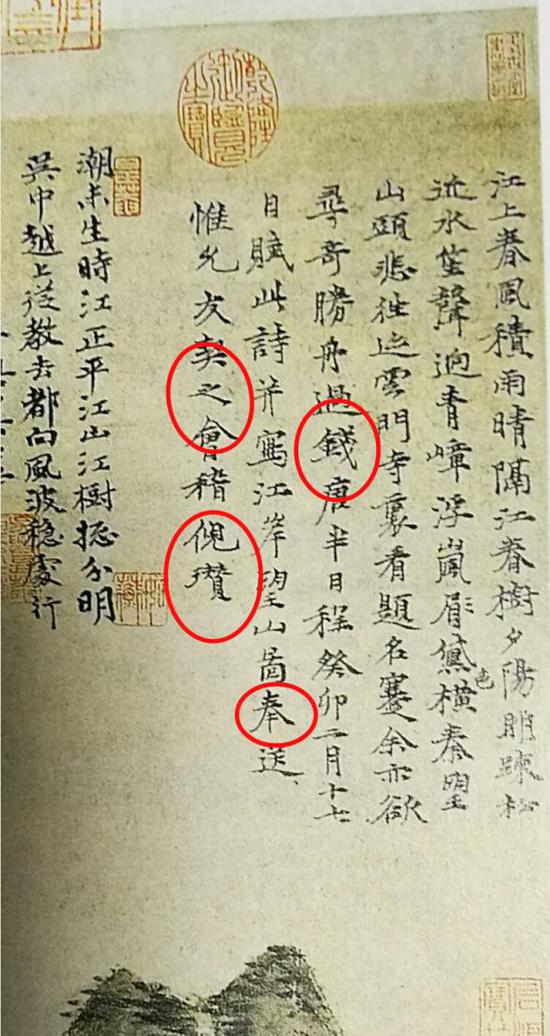 江上春風積雨晴隔江春樹夕陽明踈松
近水笙聲逈青嶂浮嵐眉黛色橫秦望
山頭悲往迹雲門寺裏看題名蹇余亦欲
尋奇勝舟過錢唐半日程癸卯二月十七
日賦此詩并寫江岸望山啚奉送
惟允友契之會稽倪瓚
乾隆御覽之寶
潮未生時江正平江山江樹捴分明
吳中越上從教去都向風波穩處行